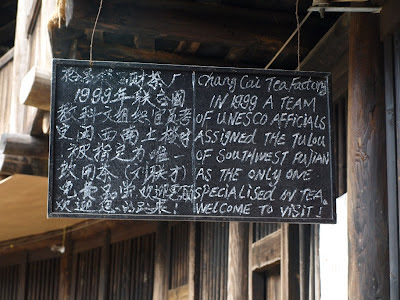 财茶厂
1999年联合国
教科文组织官员
定闽西南土楼时
被指定为唯一
饮用茶(刘联才)
免费品尝欢迎
欢迎您 到来!
Chang Cai Tea Factory
IN 1999 A TEAM
OF UNESCO AFFICIALS
ASSIGNED THE TULOU
OF SOUTHWEST FUJIAN
AS THE ONLY ONE
SPECIALISED IN TEA.
WELCOME TO VISIT!